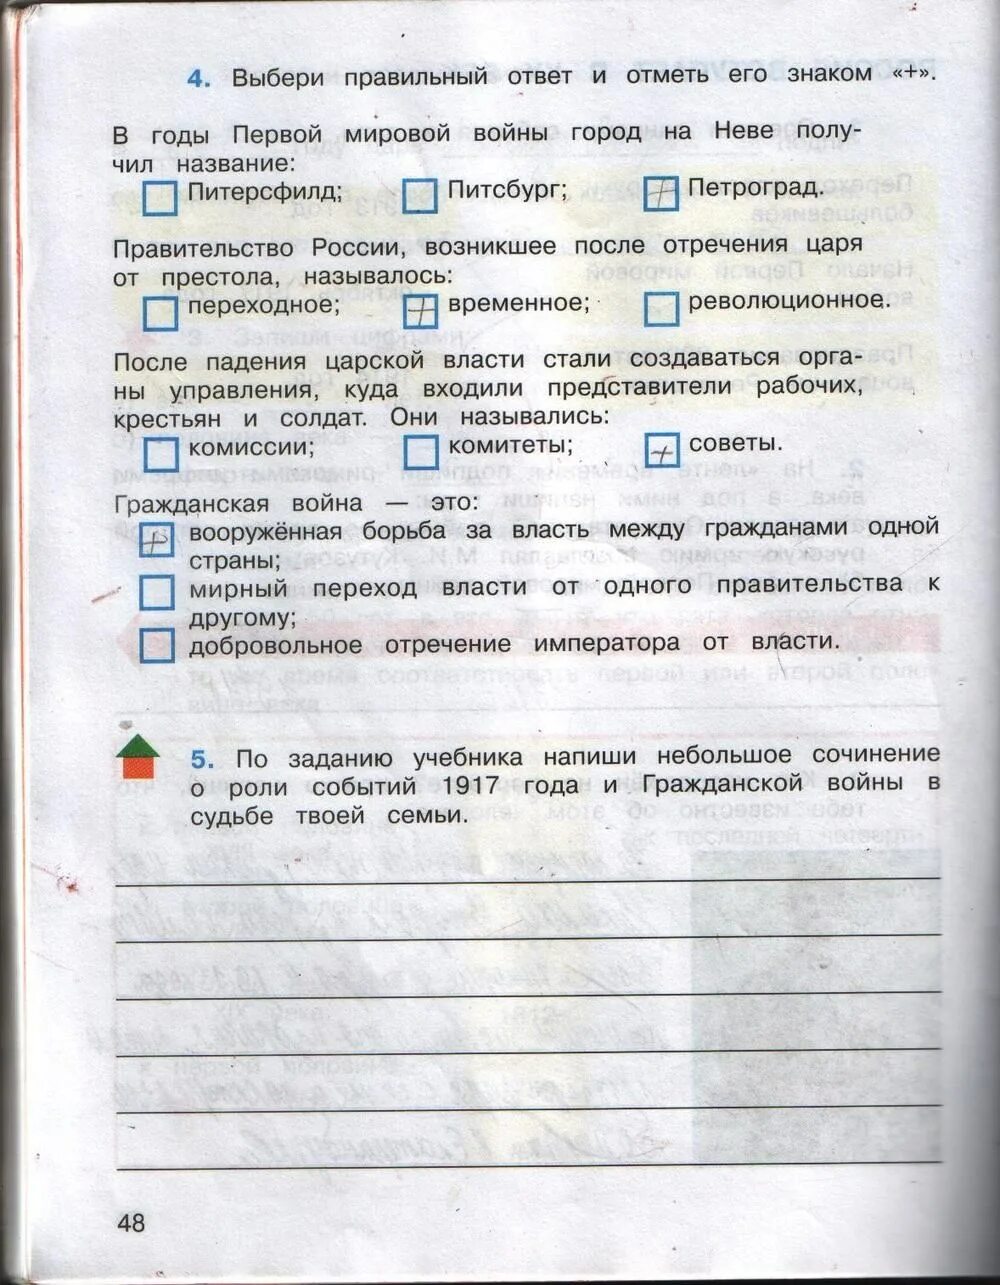 4. Выбери правильный ответ и отметь его знаком «+».
В годы Первой мировой войны город на Неве полу-
чил название:
Питерсфилд; Питсбург; + Петроград.
Правительство России, возникшее после отречения царя
от престола, называлось:
переходное; + временное; революционное.
После падения царской власти стали создаваться орга-
ны управления, куда входили представители рабочих,
крестьян и солдат. Они назывались:
комиссии; комитеты; + советы.
Гражданская война — это:
+ вооружённая борьба за власть между гражданами одной
страны;
мирный переход власти от одного правительства к
другому;
добровольное отречение императора от власти.
5. По заданию учебника напиши небольшое сочинение
о роли событий 1917 года и Гражданской войны в
судьбе твоей семьи.
48